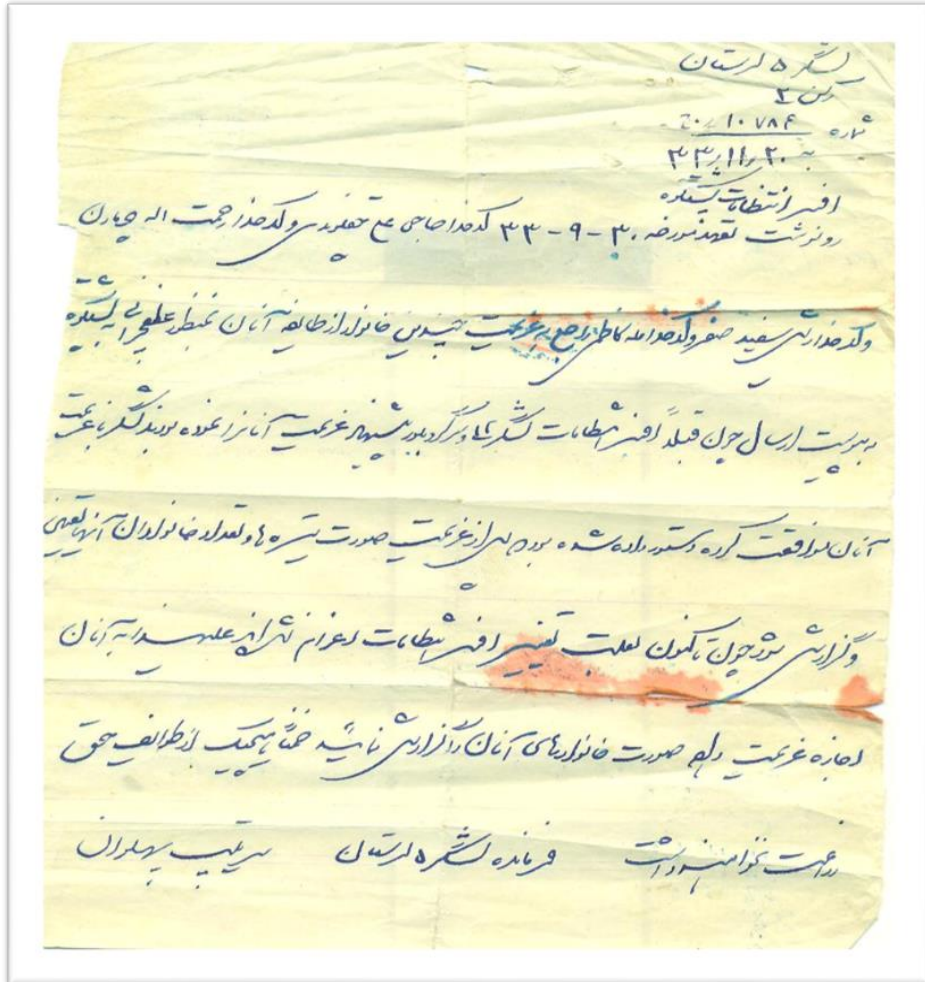 لشگر ۵ لرستان
رکن ۲
شماره ۱۰۷۸۶
به ۳۳/۱۱/۲۰
افسر انتظامات پشتکوه
رونوشت تعهد مورخه ۳۰-۹-۳۳ کدخدا حاجی و کدخدا رحمت اله
و کدخدا صفر و کدخدا کاظمی راجع به عزیمت چندین خانوار از طایفه آنان بمنظور به پشتکوه
به پیوست ارسال چون قبلاً افسر انتظامات لشگر و پیشنهاد عزیمت آنانرا نموده بودند لشگر با عزیمت
آنان موافقت کرده دستور داده شده بود پس از عزیمت صورت تیره ها و تعداد خانواران آنها تعیین
و گزارش شود چون تاکنون بعلت تغییر افسر انتظامات اعزام نشده اند علیهذا به آنان
اجازه عزیمت داده صورت خانوارهای آنان را گزارش نمائید ضمناً هیچیک از طوایف حق
زراعت نخواهند داشت فرمانده لشگر ۵ لرستان سرتیپ